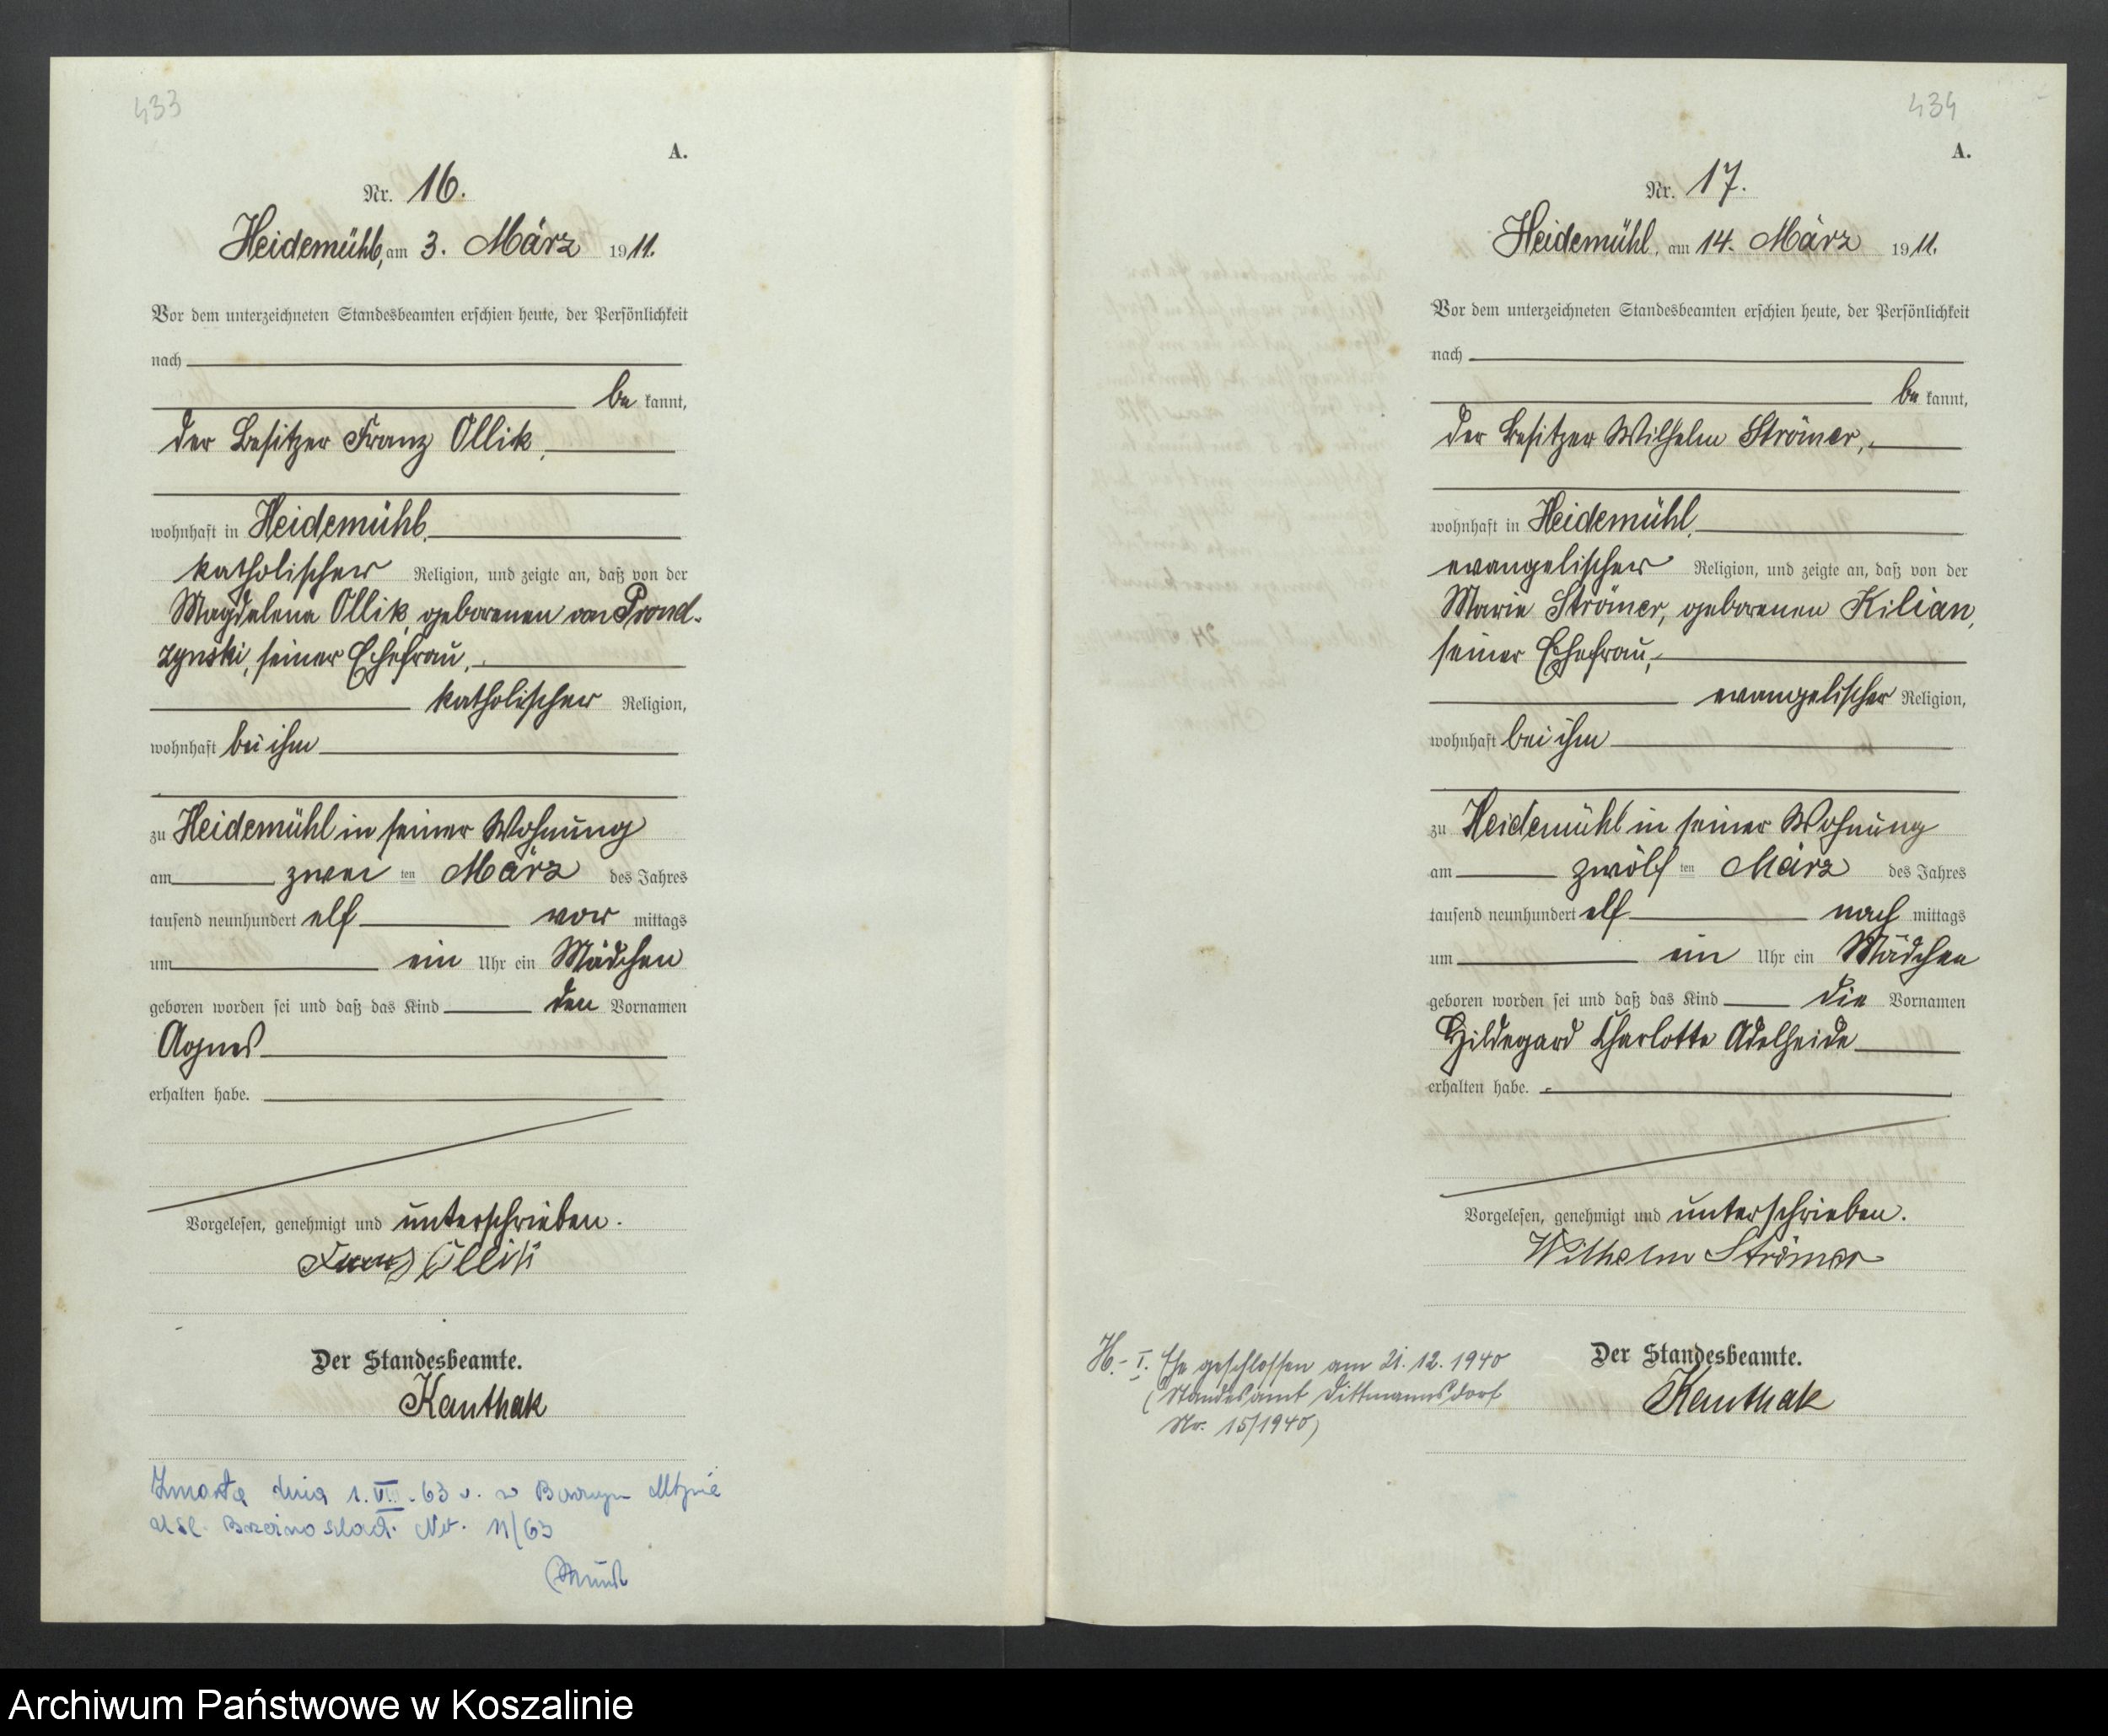 433
A.
Nr. 16.
Heidemühl, am 3. März 1911.
Vor dem unterzeichneten Standesbeamten erschien heute, der Persönlichkeit
nach
be kannt,
der Besitzer Franz Ollik,
wohnhaft in Heidemühl,
katholischer Religion, und zeigte an, daß von der
Magdalena Ollik, geborenen von Prond-
zynski, seiner Ehefrau,
katholischer Religion,
wohnhaft bei ihm
zu Heidemühl in seiner Wohnung
am zwei ten März des Jahres
tausend neunhundert elf vor mittags
um ein Uhr ein Mädchen
geboren worden sei und daß das Kind den Vornamen
Agnes
erhalten habe.
Vorgelesen, genehmigt und unterschrieben.
Franz Ollik
Der Standesbeamte.
Kauthak
Zmarła dnia 1. 63 r. w
USC. Nr. 11/63
434
A.
Nr. 17.
Heidemühl, am 14. März 1911.
Vor dem unterzeichneten Standesbeamten erschien heute, der Persönlichkeit
nach
be kannt,
der Besitzer Wilhelm Strömer,
wohnhaft in Heidemühl,
evangelischer Religion, und zeigte an, daß von der
Marie Strömer, geborenen Kilian,
seiner Ehefrau,
evangelischer Religion,
wohnhaft bei ihm
zu Heidemühl in seiner Wohnung
am zwölf ten März des Jahres
tausend neunhundert elf nach mittags
um ein Uhr ein Mädchen
geboren worden sei und daß das Kind die Vornamen
Hildegard Charlotte Adelheide
erhalten habe.
Vorgelesen, genehmigt und unterschrieben.
Wilhelm Strömer
Der Standesbeamte.
Kauthak
H.- I. Ehe geschlossen am 21. 12. 1940
(Standesamt Dittmannsdorf
Nr. 15/1940)
Archiwum Państwowe w Koszalinie